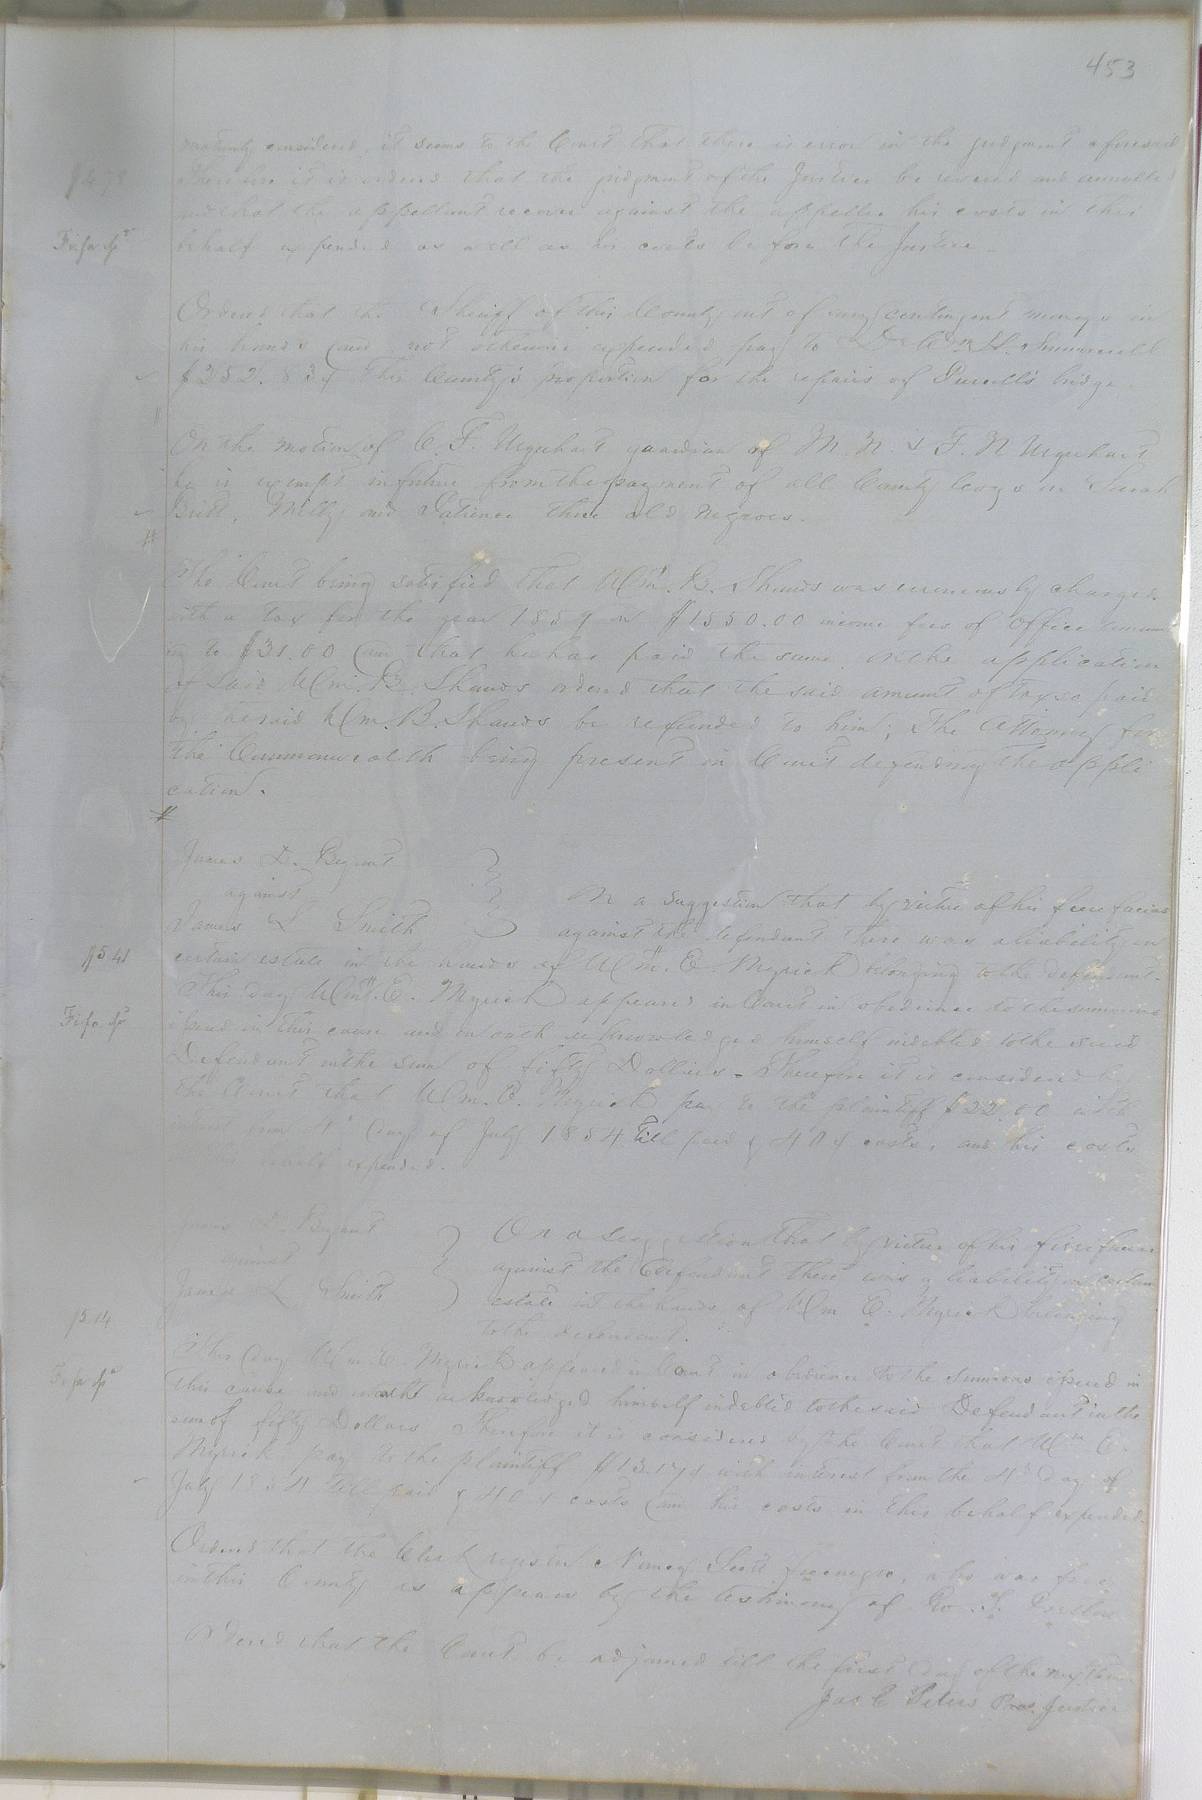 453
maturely considered, it seems to the Court that there is error in the judgment aforesaid
Therefore it is ordered that the judgment of the Justice be reversed and annulled
and that the appellant recover against the appellee his costs in this
Fi fa Spt
behalf expended as well as his costs before the Justice.
Ordered that the Sheriff of this County out of any contingent moneys in
his hands and not otherwise expended pay to Dr Wm H. Summerell
$252.83¢ this County's proportion for the repairs of Purcell's bridge.
On the motion of C. F. Urquhart guardian of M. N. & F. N Urquhart
he is exempt in future from the payment of all County levys on Sarah
Britt, Milly and Patience three old negroes.
The Court being satisfied that Wm. B. Shands was erroneously charged
with a tax for the year 1857 on $1550.00 income fees of Office amount
ing to $31.00 and that he has paid the same. On the application
of said Wm. B. Shands ordered that the said amount of tax so paid
by the said Wm. B. Shands be refunded to him; The Attorney for
the Commonwealth being present in Court defending the appli
cation.
James D. Bryant
against
On a suggestion that by virtue of his fieri facias
James L Smith
against the defendant there was a liability on
$541
certain estate in the hands of Wm. E. Myrick belonging to the defendant.
This day Wm. E. Myrick appeared in Court in obedience to the summons
Fi fa Spt
issued in this cause and on oath acknowledged himself indebted to the said
Defendant in the sum of fifty Dollars - Therefore it is considered by
the Court that Wm. E. Myrick pay to the plaintiff $22.00 with
interest from 4th day of July 1854 till paid & 40¢ costs, and his costs
in this behalf expended.
James D. Bryant
On a suggestion that by virtue of his fieri facias
against
against the Defendant there was a liability on certain
James L Smith
estate in the hands of Wm E. Myrick belonging
to the defendant.
514
This day Wm. E. Myrick appeared in Court in obedience to the summons issued in
Fi fa Spt
this cause and on oath acknowledged himself indebted to the said Defendant in the
sum of fifty Dollars Therefore it is considered by the Court that Wm E.
Myrick pay to the plaintiff $13.17¢ with interest from the 4th day of
July 1854 till paid & 40¢ costs and his costs in this behalf expended.
Ordered that the Clerk register Nancy Scott free negro, who was free
in this County as appears by the testimony of
Ordered that the Court be adjourned till the first day of the next term
Jas E Peters Pres. Justice